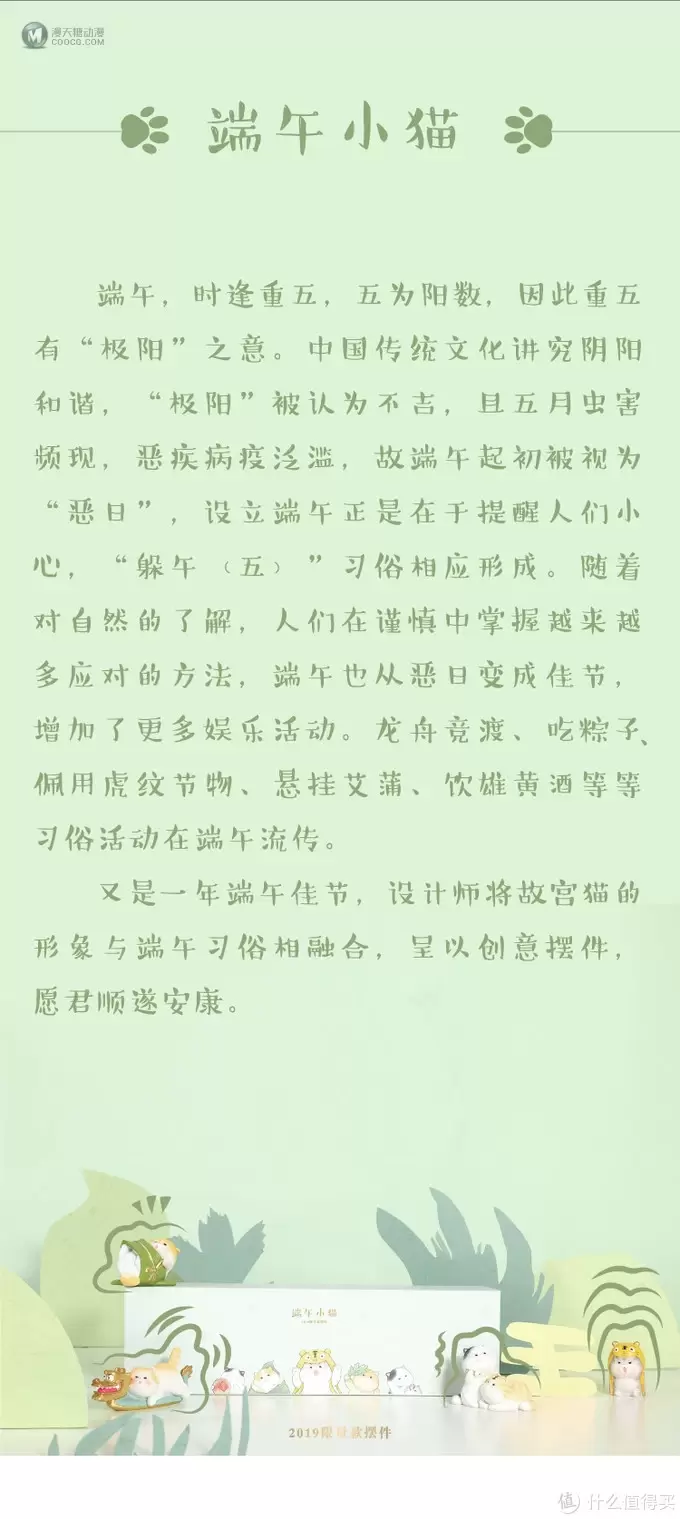 漫天糖动漫
COOCG.COM
端午小猫
端午，时逢重五，五为阳数，因此重五
有“极阳”之意。中国传统文化讲究阴阳
和谐，“极阳”被认为不吉，且五月虫害
频现，恶疾病疫泛滥，故端午起初被视为
“恶日”，设立端午正是在于提醒人们小
心，“躲午（五）”习俗相应形成。随着
对自然的了解，人们在谨慎中掌握越来越
多应对的方法，端午也从恶日变成佳节，
增加了更多娱乐活动。龙舟竞渡、吃粽子、
佩用虎纹节物、悬挂艾蒲、饮雄黄酒等等
习俗活动在端午流传。
又是一年端午佳节，设计师将故宫猫的
形象与端午习俗相融合，呈以创意摆件，
愿君顺遂安康。
端午小猫
2019限量款摆件
值 什么值得买